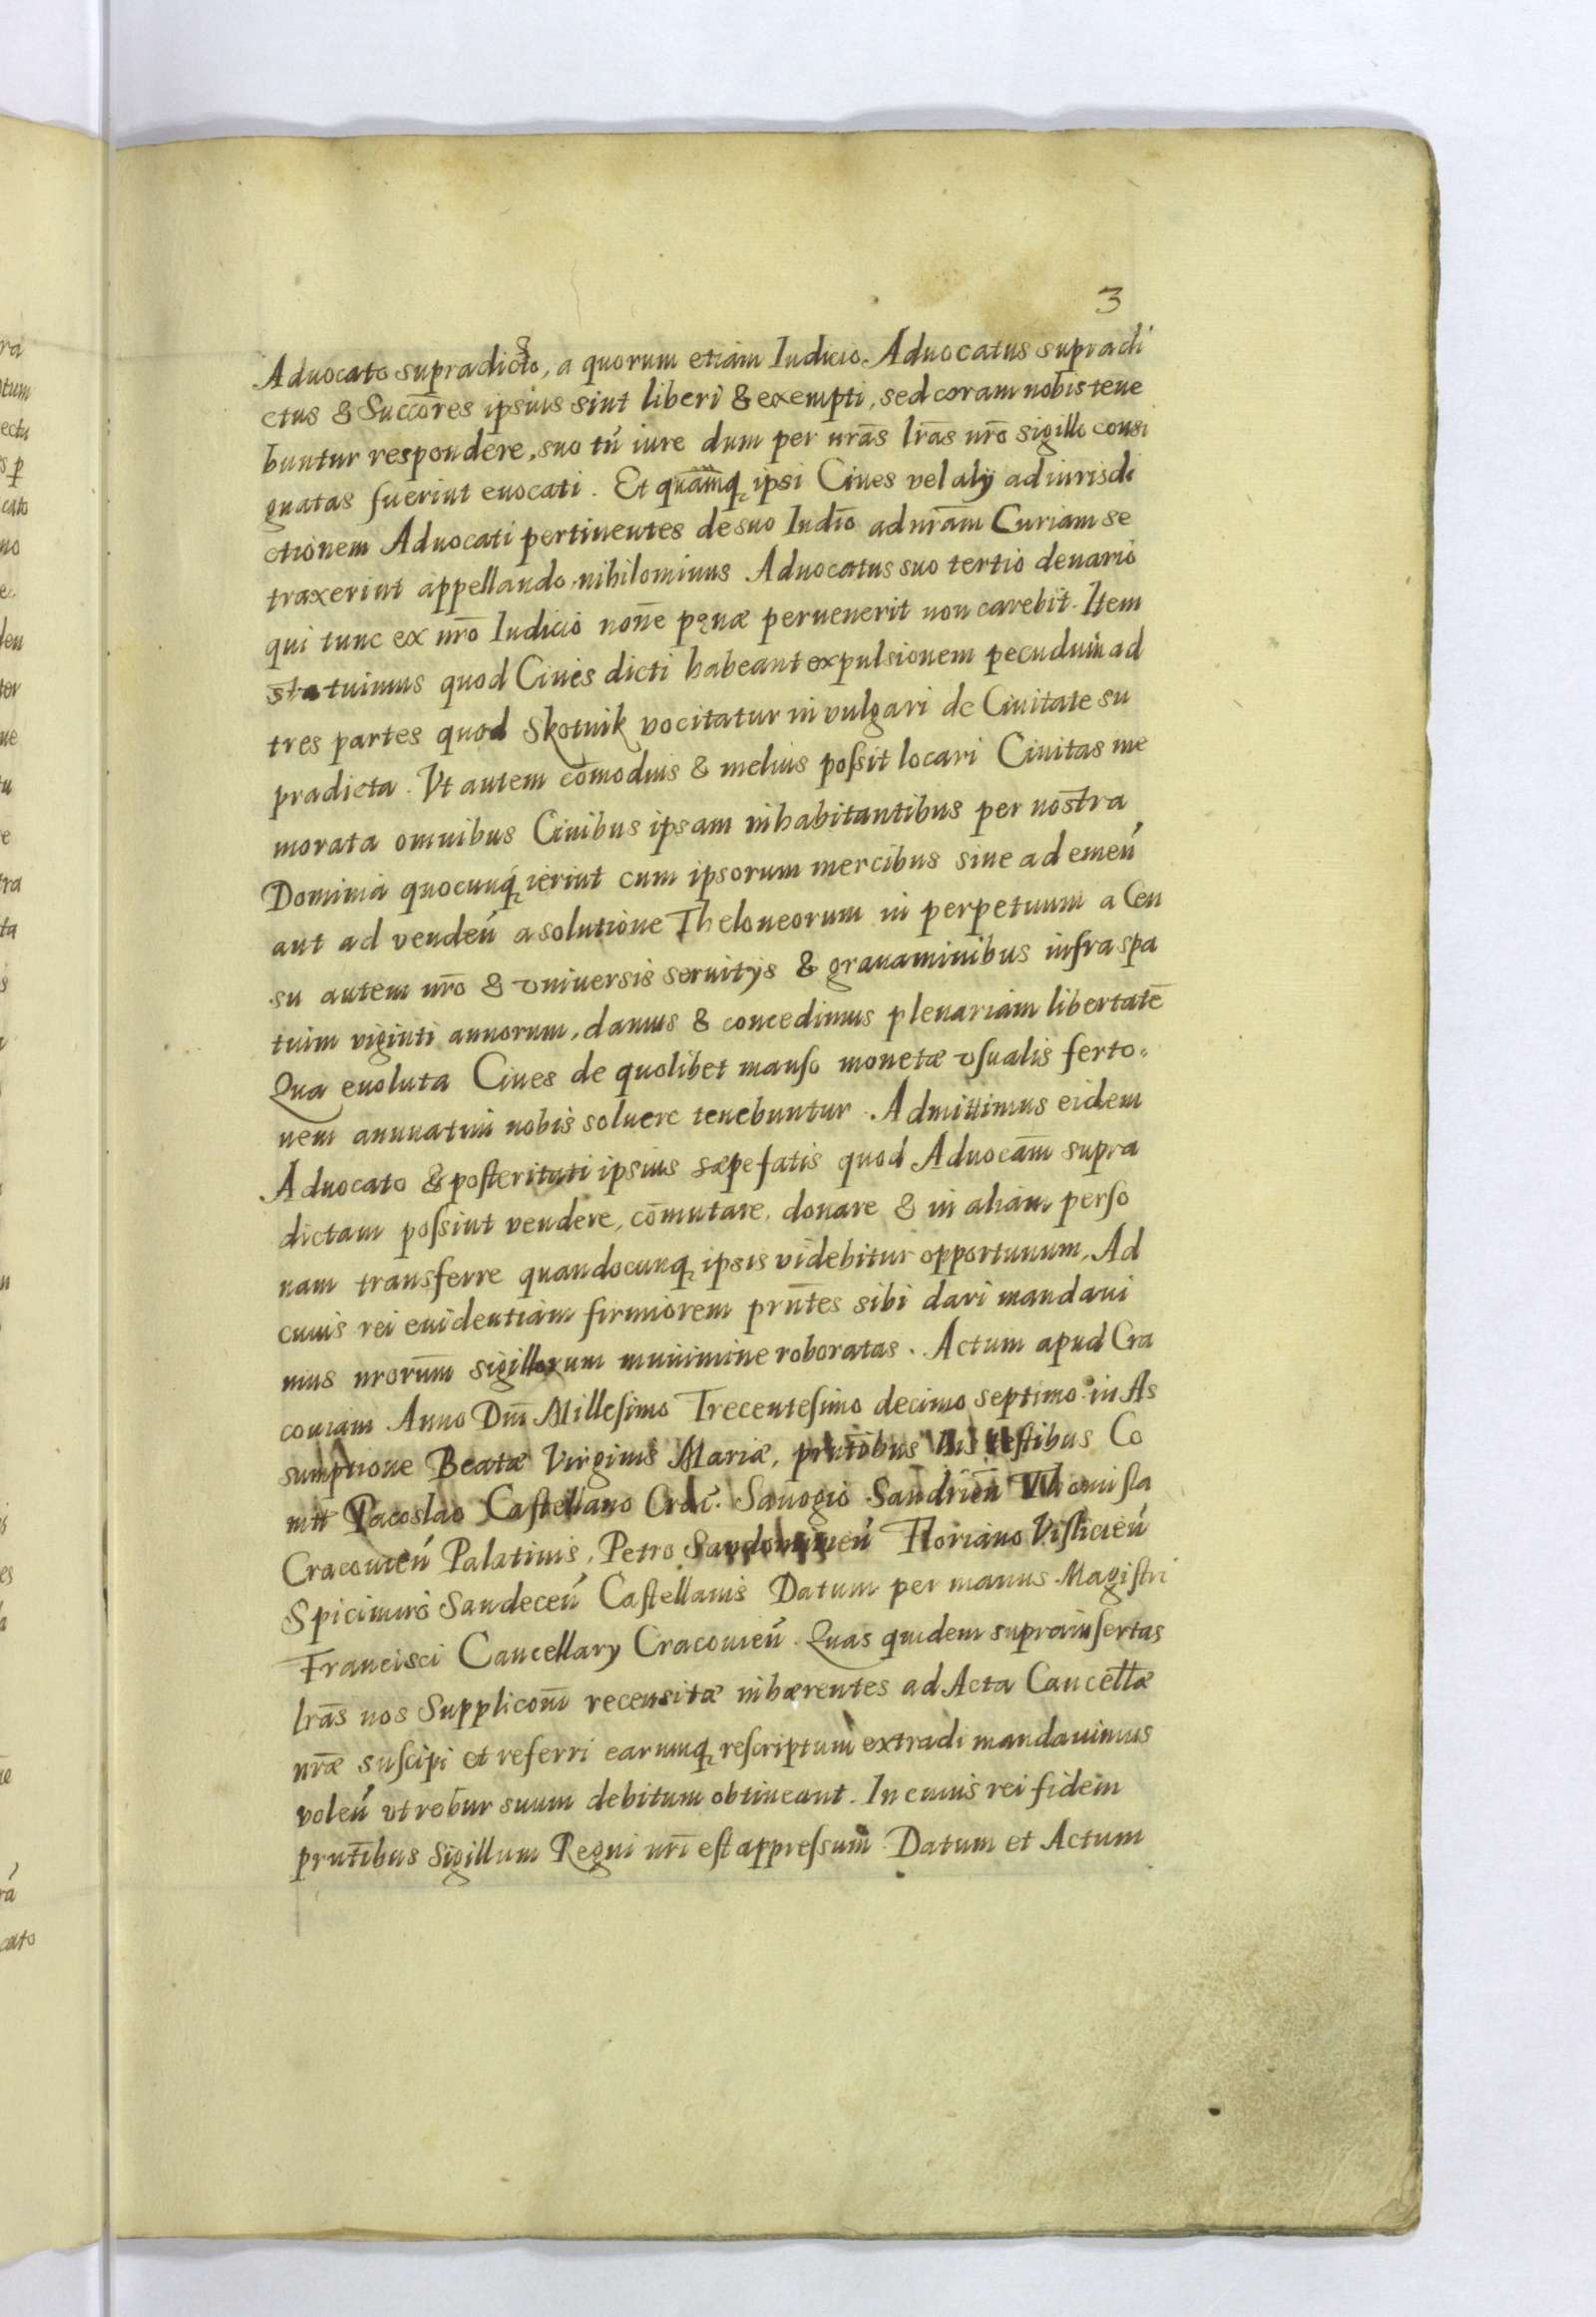 3
Advocato supradicto, a quorum etiam Iudicio Advocatus supradi
ctus & Succōres ipsius sint liberi & exempti, sed coram nobis tene
buntur respondere, suo tń iure dum per nrās lrās nrō sigillo consi
gnatas fuerint euocati. Et quāmq ipsi Ciues vel alÿ ad iurisdi
ctionem Advocati pertinentes de suo Iudīo ad nrām Curiam se
traxerint appellando nihilominus Advocatus suo tertio denario
qui tunc ex nrō Iudicio nōne pęnæ peruenerit non carebit. Item
statuimus quod Ciues dicti habeant expulsionem pecudum ad
tres partes quod Skotnik vocitatur in vulgari de Ciuitate su
pradicta. Vt autem cōmodius & melius possit locari Ciuitas me
morata omnibus Ciuibus ipsam inhabitantibus per nostra
Dominia quocunq ierint cum ipsorum mercibus siue ad emeń
aut ad vendeń a solutione Theloneorum in perpetuum a Cen
su autem nrō & vniuersis seruitÿs & grauaminibus infra spa
tium viginti annorum, damus & concedimus plenariam libertatē
Qua euoluta Ciues de quolibet manso monetæ vsualis ferto=
nem annuatim nobis soluere tenebuntur. Admittimus eidem
Advocato & posteritati ipsius sæpefatis quod Advocām supra
dictam possint vendere, cōmutare, donare & in aliam perso
nam transferre quandocunq ipsis videbitur opportunum, Ad
cuius rei euidentiam firmiorem prn̄tes sibi dari mandaui
mus nrorum̄ sigillorum munimine roboratas. Actum apud Cra
couiam Anno Dnī Millesimo Trecentesimo decimo septimo in As
sumptione Beatæ Virginis Mariæ, prntībus his testibus Co
mit Pacoslao Castellano Crać. Sauogio Sandrień Thomisla
Cracouień Palatinis, Petro Sandomirień Floriano Vislicień
Spicimiro Sandeceń Castellanis Datum per manus Magistri
Francisci Cancellary Cracouień. Quas quidem suprainsertas
lrās nos Supplicom̄ recensitæ inhærentes ad Acta Cancellæ
nrǣ suscipi et referri earumq rescriptum extradi mandauimus
voleń vt robur suum debitum obtineant. In cuius rei fidem
prntībus Sigillum Regni nrī est appressum. Datum et Actum